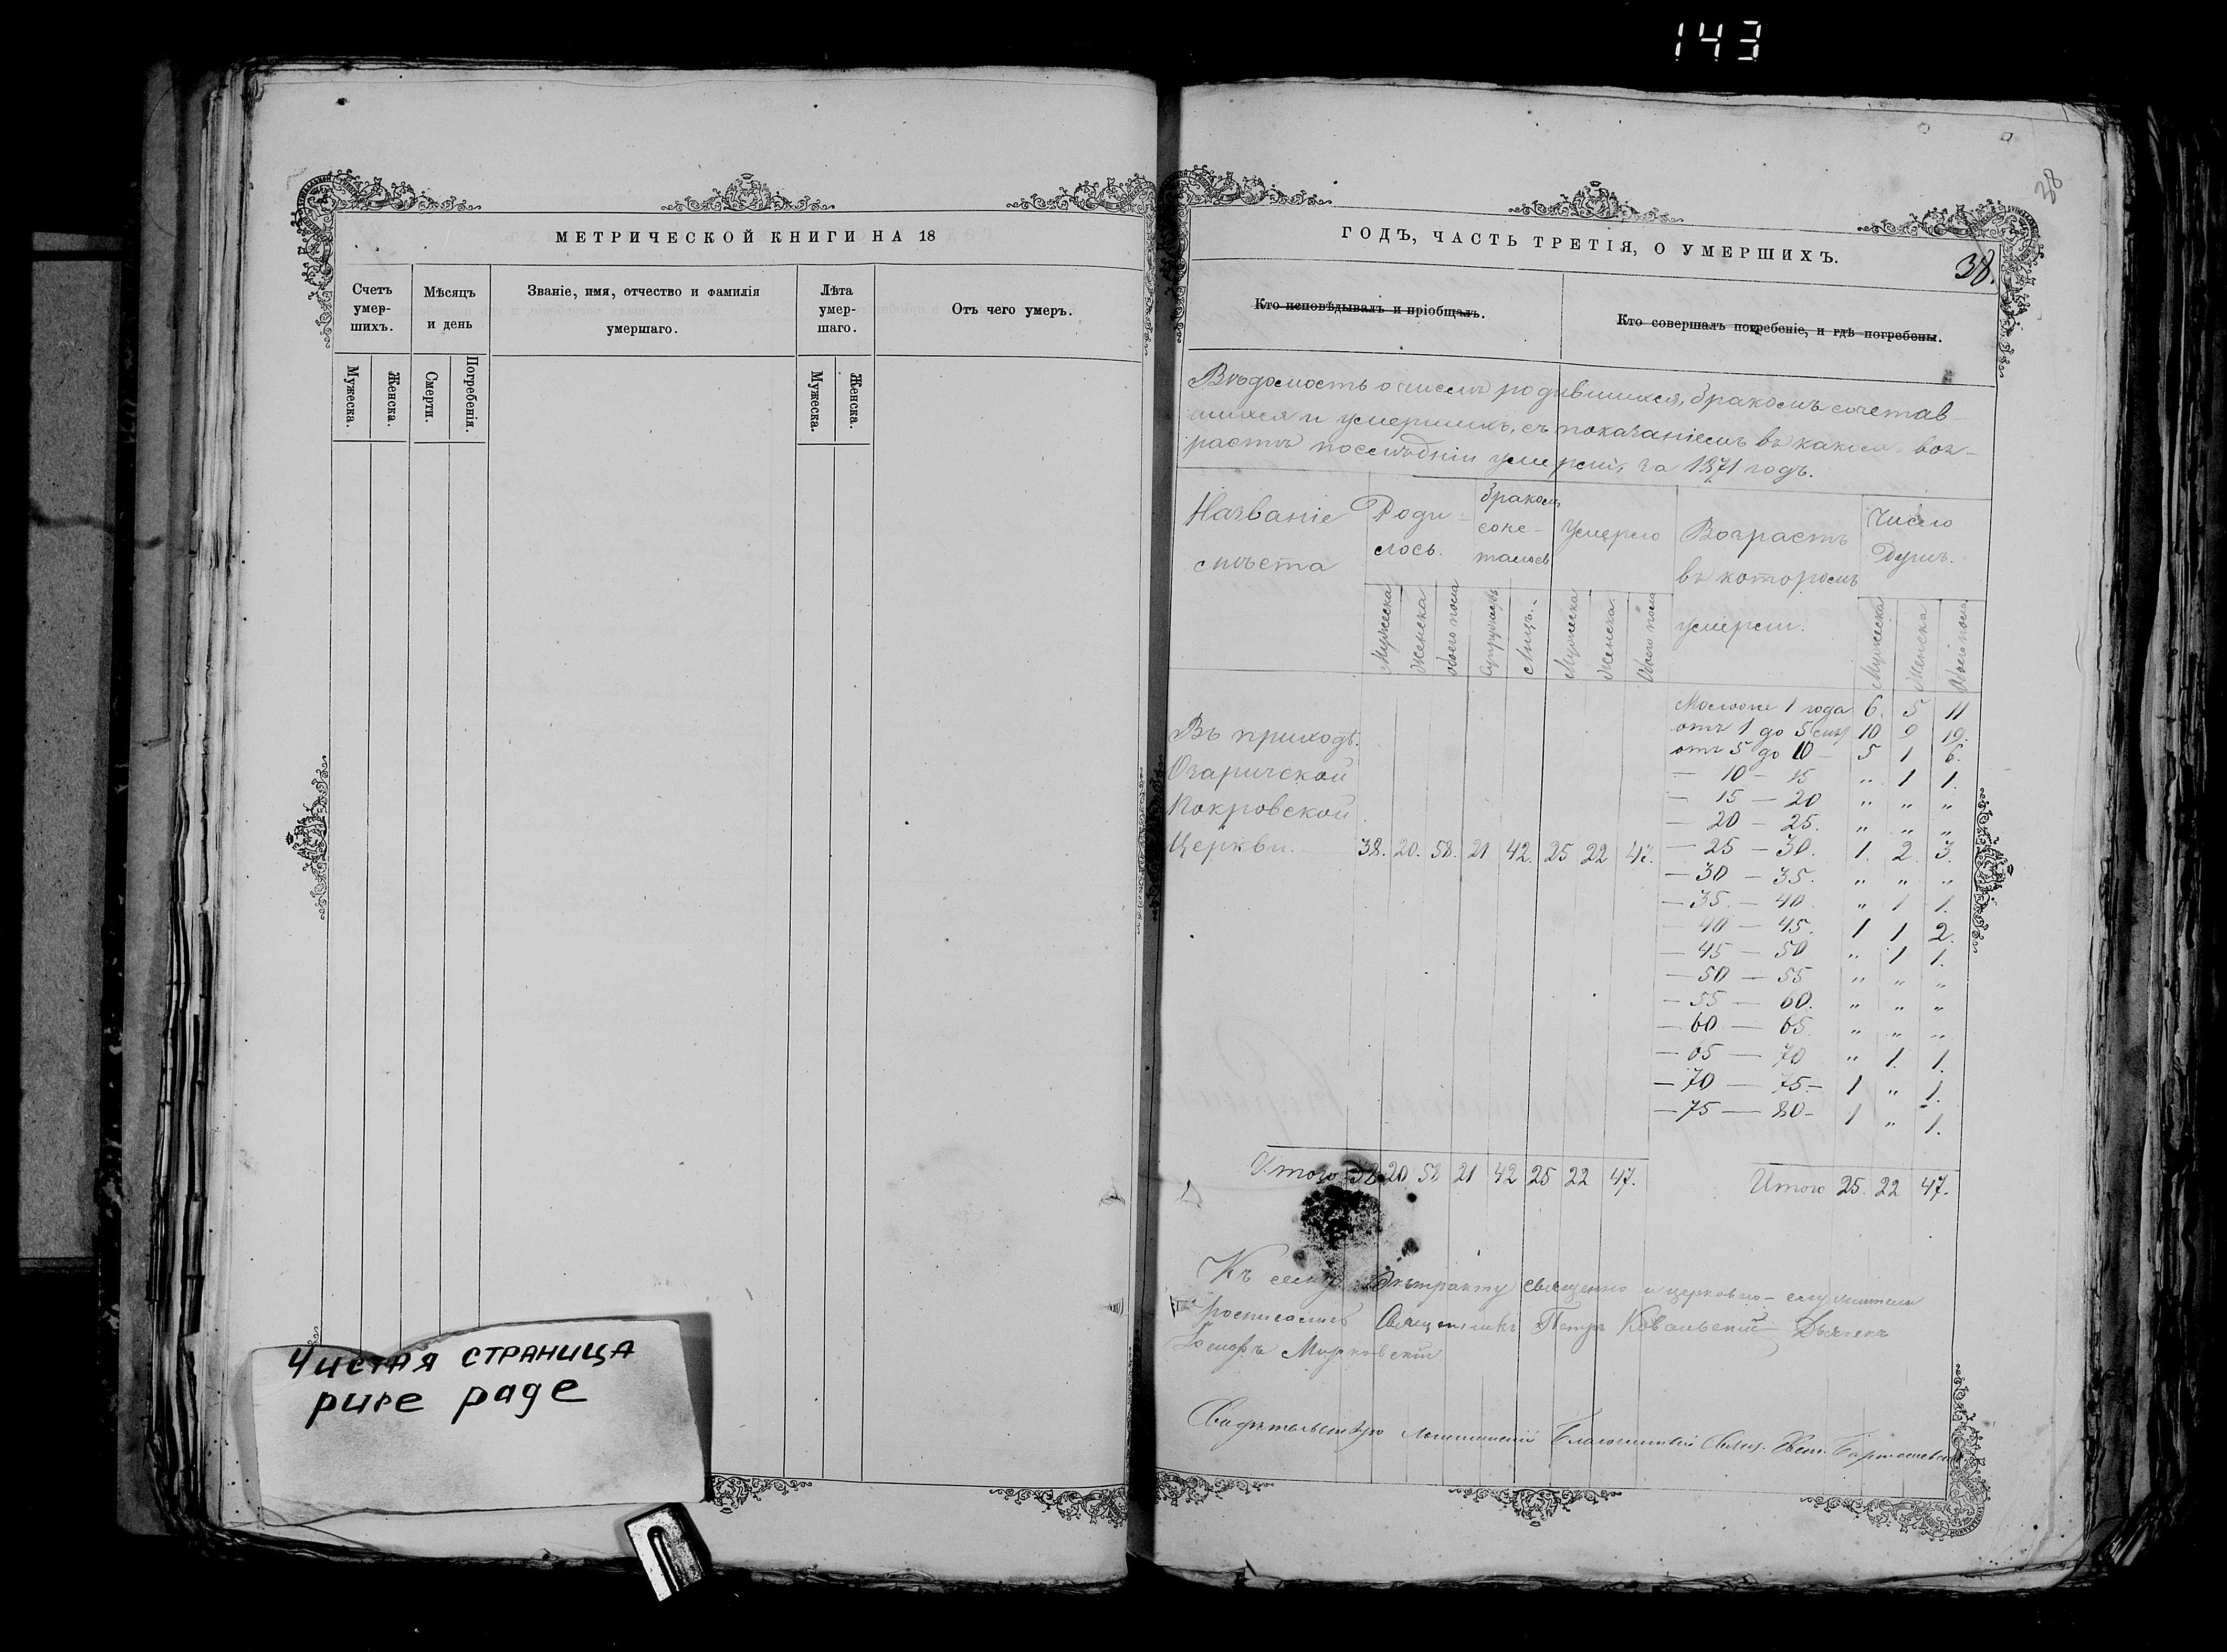 143
МЕТРИЧЕСКОЙ КНИГИ НА 18
Счетъ умер-шихъ.
Мѣсяцъ и день
Званіе, имя, отчество и фамилія умершаго.
Лѣта умер-шаго.
Отъ чего умеръ.
Мужеска.
Женска.
Смерти.
Погребенія.
Мужеска.
Женска.
Чистая страница
pure page
38
ГОДЪ, ЧАСТЬ ТРЕТІЯ, О УМЕРШИХЪ.
38.
Кто исповѣдывалъ и пріобщалъ.
Кто совершалъ погребеніе, и гдѣ погребены.
Вѣдомость о числѣ родившихся, бракомъ сочетав
шихся и умершихъ, съ показаніемъ въ какомъ воз-
растѣ послѣдніи умерли, за 1871 годъ.
Названіе мѣста
Роди-лось.
Бракомъ соче-талось
Умерло
Возрастъ въ которомъ умерли.
Число Душъ.
Мужеска
Женска
Обоего пола
Супружествъ
Лицъ.
Мужеска
Женска.
Обоего пола
Мужеска
Женска
Обоего пола
Моложе 1 года 6. 5 11
отъ 1 до 5 лѣтъ 10 9 19.
отъ 5 до 10 — 5 1 6.
— 10 — 15 „ 1 1.
— 15 — 20 „ „ „
— 20 — 25. „ „ „
Въ приходѣ
Озаричской
Покровской
Церкви. 38. 20. 58. 21 42. 25 22 47.
— 25 — 30. 1. 2. 3.
— 30 — 35. „ „ „
— 35. — 40. „ 1 1.
— 40 — 45. 1 1 2.
— 45 — 50 „ 1 1.
— 50 — 55 „ „ „
— 55 — 60. „ „ „
— 60 — 65. „ „ „
— 65 — 70 „ 1. 1.
— 70 — 75 — 1 „ 1.
— 75 — 80 — 1 „ 1.
Итого 38 20 58 21 42 25 22 47.
Итого 25. 22 47.
Къ сему Экстракту священно и церковно-служители
росписались Священникъ Петръ Ковальскій Дьячекъ
Іосифъ
Свидѣтельствую Благочинный Свящ.